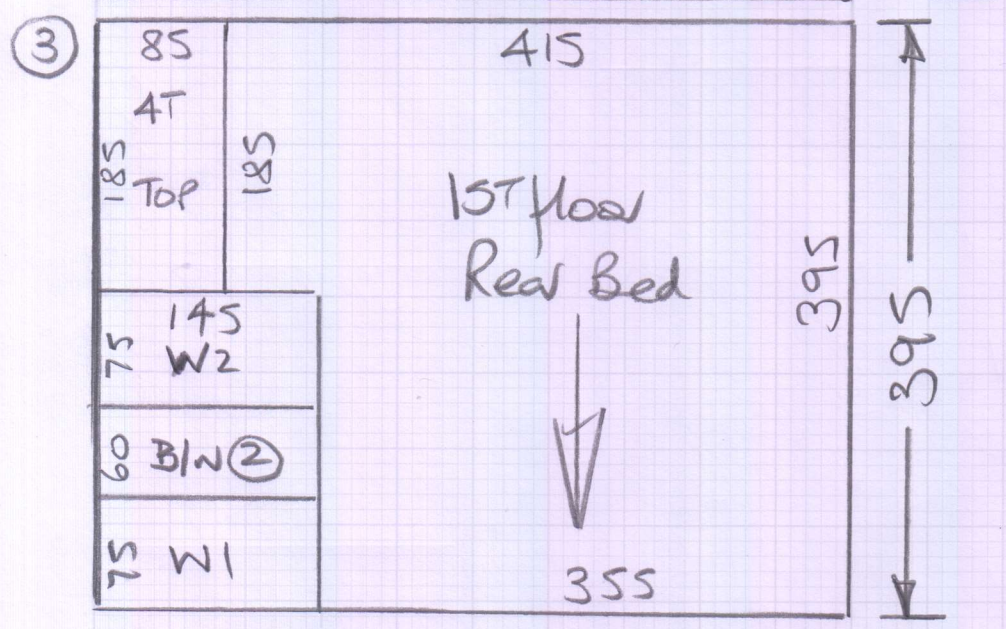 3
85
415
4T
185
TOP
185
1ST floor
Rear Bed
395
395
145
75
W2
60
B/N 2
75
W1
355